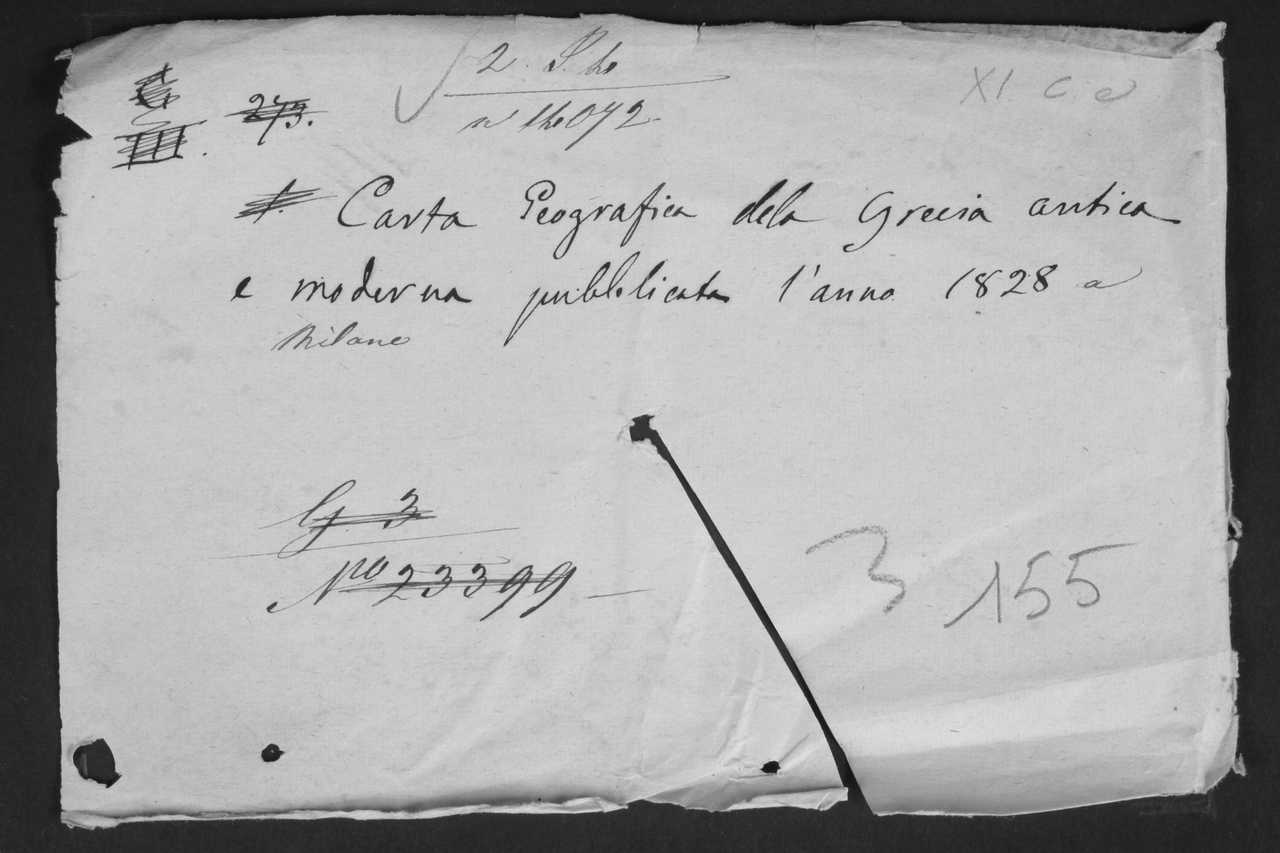 XI. C. e
273.
III.
Carta Geografica dela Grecia antica
e moderna pubblicata l'anno 1828 a
Milano
G 3
No 23399
3 155